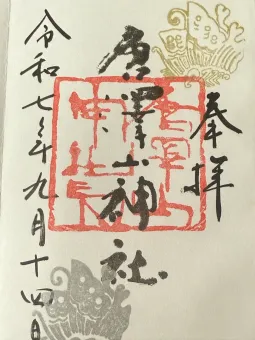 奉拝
唐澤山神社
令和七年九月十四日